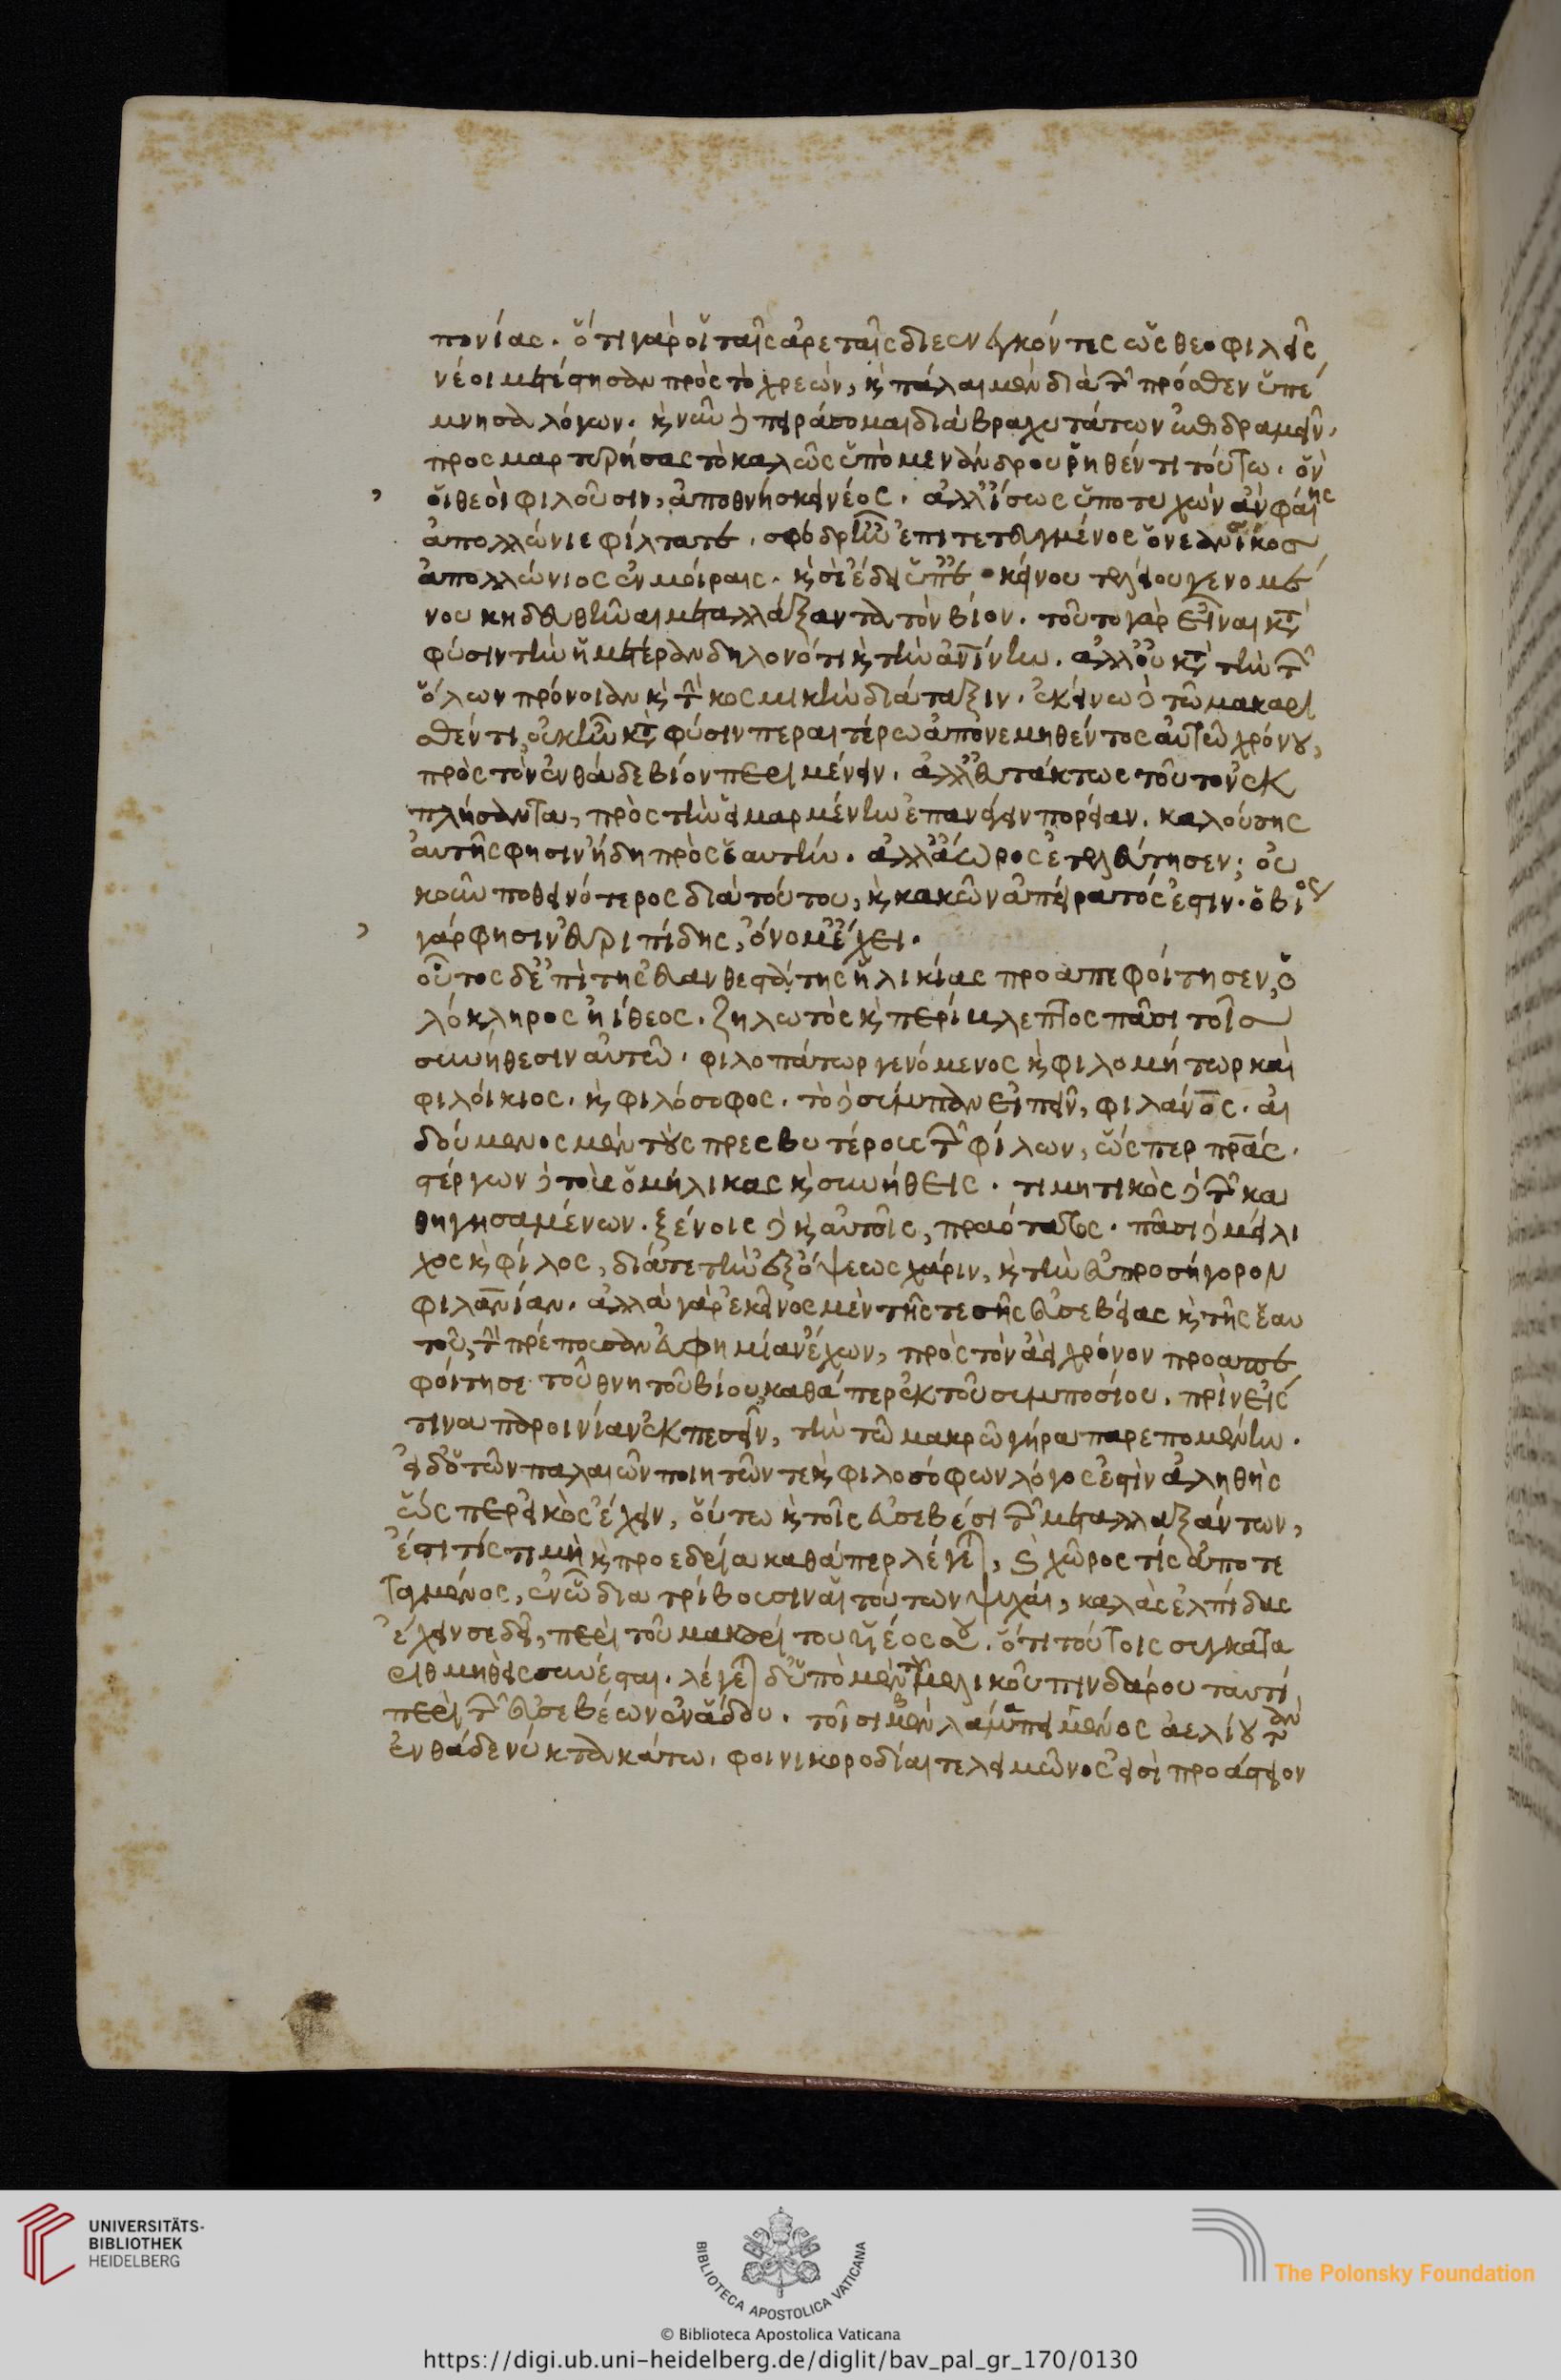 πονίας. ὅτι γὰρ οἱ ταῖς ἀρεταῖς διενεγκόντες ὡς θεοφιλεῖς
νέοι μετέστησαν πρὸς τὸ χρεών, κ πάλαι μὲν διὰ τῶν πρόσθεν ὑπέ
μνησα λόγων. κ νῦν δὲ πειράσομαι διὰ βραχυτάτων ἐπιδραμεῖν.
προσμαρτυρήσας τὸ καλῶς ὑπὸ μενάνδρου ῥηθέντι τούτω. ὃν
οἱ θεοὶ φιλοῦσιν, ἀποθνήσκει νέος. ἀλλ' ἴσως ὑποτυχὼν ἂν φαίης
ἀπολλώνιε φίλτατε. σφόδρ' ἦν ἐπιτεταγμένος ὁ νεανίσκος
ἀπολλώνιος ἐν μοίραις. κ σὲ ἔδει ὑπ' ἐκείνου τελείου γενομέ
νου κηδευθῆναι μεταλλάξαντα τὸν βίον. τοῦτο γὰρ εἶναι κατὰ
φύσιν τὴν ἡμετέραν δηλονότι κ τὴν ἀνίνην. ἀλλ' οὐ κατὰ τὴν τῶν
ὅλων πρόνοιαν κ τὴν κοσμικὴν διάταξιν. ἐκείνω δὲ τῶ μακαρι
σθέντι, οὐκ ἦν κατὰ φύσιν περαιτέρω ἀπονεμηθέντος αὐτῶ χρόνου,
πρὸς τὸν ἐνθάδε βίον περιμένειν. ἀλλ' εὐτάκτως τοῦτον ἐκ
πλήσαντα, πρὸς τὴν εἱμαρμένην ἐπανάγειν πορείαν. καλούσης
αὐτῆς φησιν ἤδη πρὸς ἑαυτήν. ἀλλ' ἄωρος ἐτελεύτησεν; οὐ
κοῦν ποθεινότερος διὰ τούτου, κ κακῶν ἀπείρατός ἐστιν. ὁ βίος
γάρ φησιν εὐριπίδης, ὄνομ' ἔχει.
οὗτος δ' ἐπὶ τῆς εὐανθεστάτης ἡλικίας προαπεφοίτησεν, ὁ
λόκληρος ἠίθεος. ζηλωτὸς κ περίβλεπτος πᾶσι τοῖς
συνήθεσιν αὐτῶ. φιλοπάτωρ γενόμενος κ φιλομήτωρ καὶ
φιλοίκιος. κ φιλόσοφος. τὸ δὲ σύμπαν εἰπεῖν, φιλάνος. αἰ
δούμενος μὲν τοὺς πρεσβυτέρους τῶν φίλων, ὥσπερ πρας.
στέργων δὲ τοὺς ὁμήλικας κ συνήθεις. τιμητικὸς δὲ τῶν κα
θηγησαμένων. ξένοις δὲ κ αὐτοῖς, πραότατος. πᾶσι δὲ μείλι
χος κ φίλος, διά τε τὴν ἐξ ὄψεως χάριν, κ τὴν εὐπροσήγορον
φιλανίαν. ἀλλὰ γὰρ ἐκεῖνος μὲν τῆς τε σῆς εὐσεβείας κ τῆς ἑαυ
τοῦ, τὴν πρέπουσαν εὐφημίαν ἔχων, πρὸς τὸν ἀεὶ χρόνον προαπε
φοίτησε τοῦ θνητοῦ βίου, καθάπερ ἐκ τοῦ συμποσίου. πρὶν εἰς
τινα παροινίαν ἐκπεσεῖν, τὴν τῶ μακρῶ γήρα παρεπομένην.
εἰ δ' ὁ τῶν παλαιῶν ποιητῶν τε κ φιλοσόφων λόγος ἐστὶν ἀληθὴς
ὥσπερ εἰκὸς ἔχειν, οὕτω κ τοῖς εὐσεβέσι τῶν μεταλλαξάντων,
ἔστι τίς τιμὴ κ προεδρεία καθάπερ λέγεται, κ χῶρος τίς ἀποτε
ταγμένος, ἐν ᾧ διατρίβουσιν αἱ τούτων ψυχαί, καλὰς ἐλπίδας
ἔχειν σε δεῖ, περὶ τοῦ μακαρίτου υἱέος σου. ὅτι τούτοις συγκατα
ριθμηθεὶς συνέσται. λέγεται δ' ὑπὸ μὲν τοῦ μελικοῦ πινδάρου ταυτί
περὶ τῶν εὐσεβέων ἐν ἅδου. τοῖσι μὲν λάμπει μένος ἀελίου τὰν
ἐνθάδε νύκτα κάτω. φοινικοροδίαι τε λειμῶνος εἰσὶ προάστειον
UNIVERSITÄTS-
BIBLIOTHEK
HEIDELBERG
BIBLIOTECA APOSTOLICA VATICANA
The Polonsky Foundation
© Biblioteca Apostolica Vaticana
https://digi.ub.uni-heidelberg.de/diglit/bav_pal_gr_170/0130